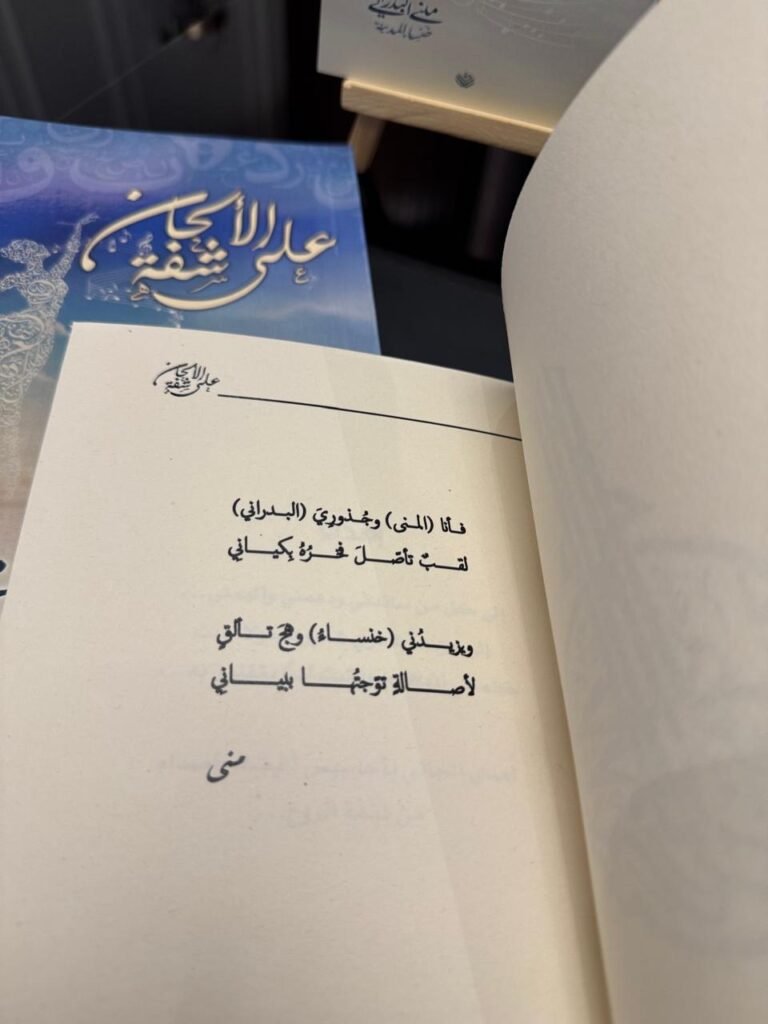 منى البدراني
على شفة الألحان
على شفة الألحان
فأنا (المنى) وجُذوريَ (البدراني)
لقبٌ تأصّلَ فخرُهُ بِكياني
ويزيدُني (خنساءُ) وهجَ تألّقٍ
لأصالةٍ توّجتُها ببياني
منى